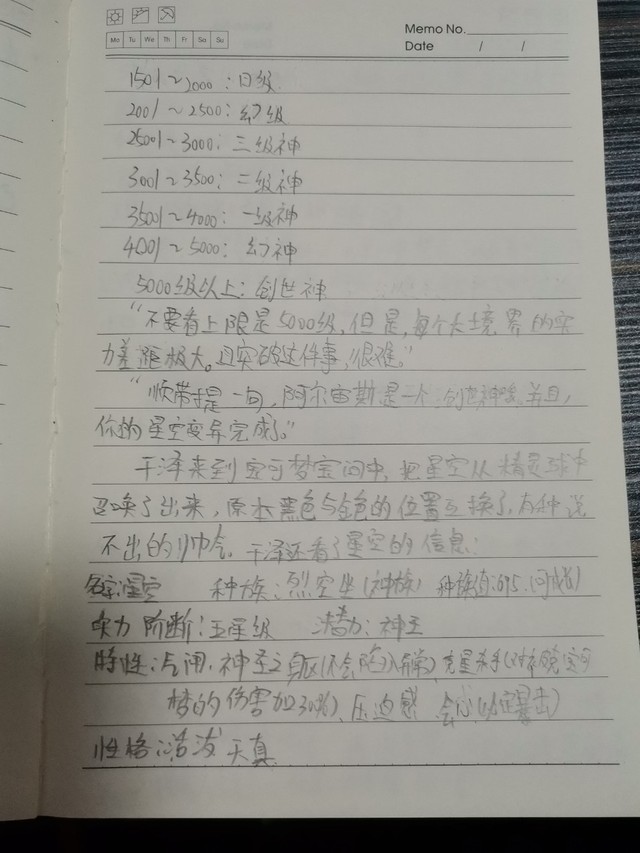 Memo No.
Mo Tu We Th Fr Sa Su
Date / /
1501~2000：日级
2001~2500：幻级
2501~3000：三级神
3001~3500：二级神
3501~4000：一级神
4001~5000：幻神
5000级以上：创世神
“不要看上限是5000级，但是，每个大境界的实
力差距极大。且突破这件事，很难。”
“顺带提一句，阿尔宙斯是一个创世神哦。并且，
你的星空变异完成了。”
于泽来到宝可梦空间中，把星空从精灵球中
召唤了出来，原本黑色与金色的位置互换了，有种说
不出的帅气。于泽还看了星空的信息：
名字：星空 种族：烈空坐（神族） 种族值：695（可成长）
实力阶断：五星级 潜力：神王
特性：气闸，神圣之躯（不会陷入异常），克星杀手（对
梦的伤害加230%）、压迫感 会心（必定暴击）
性格：活泼 天真